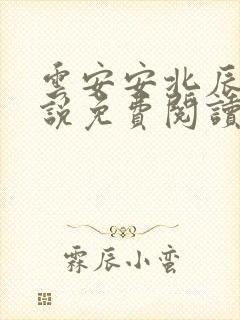 雲安安北辰
說免費閱讀
霖辰小蛮